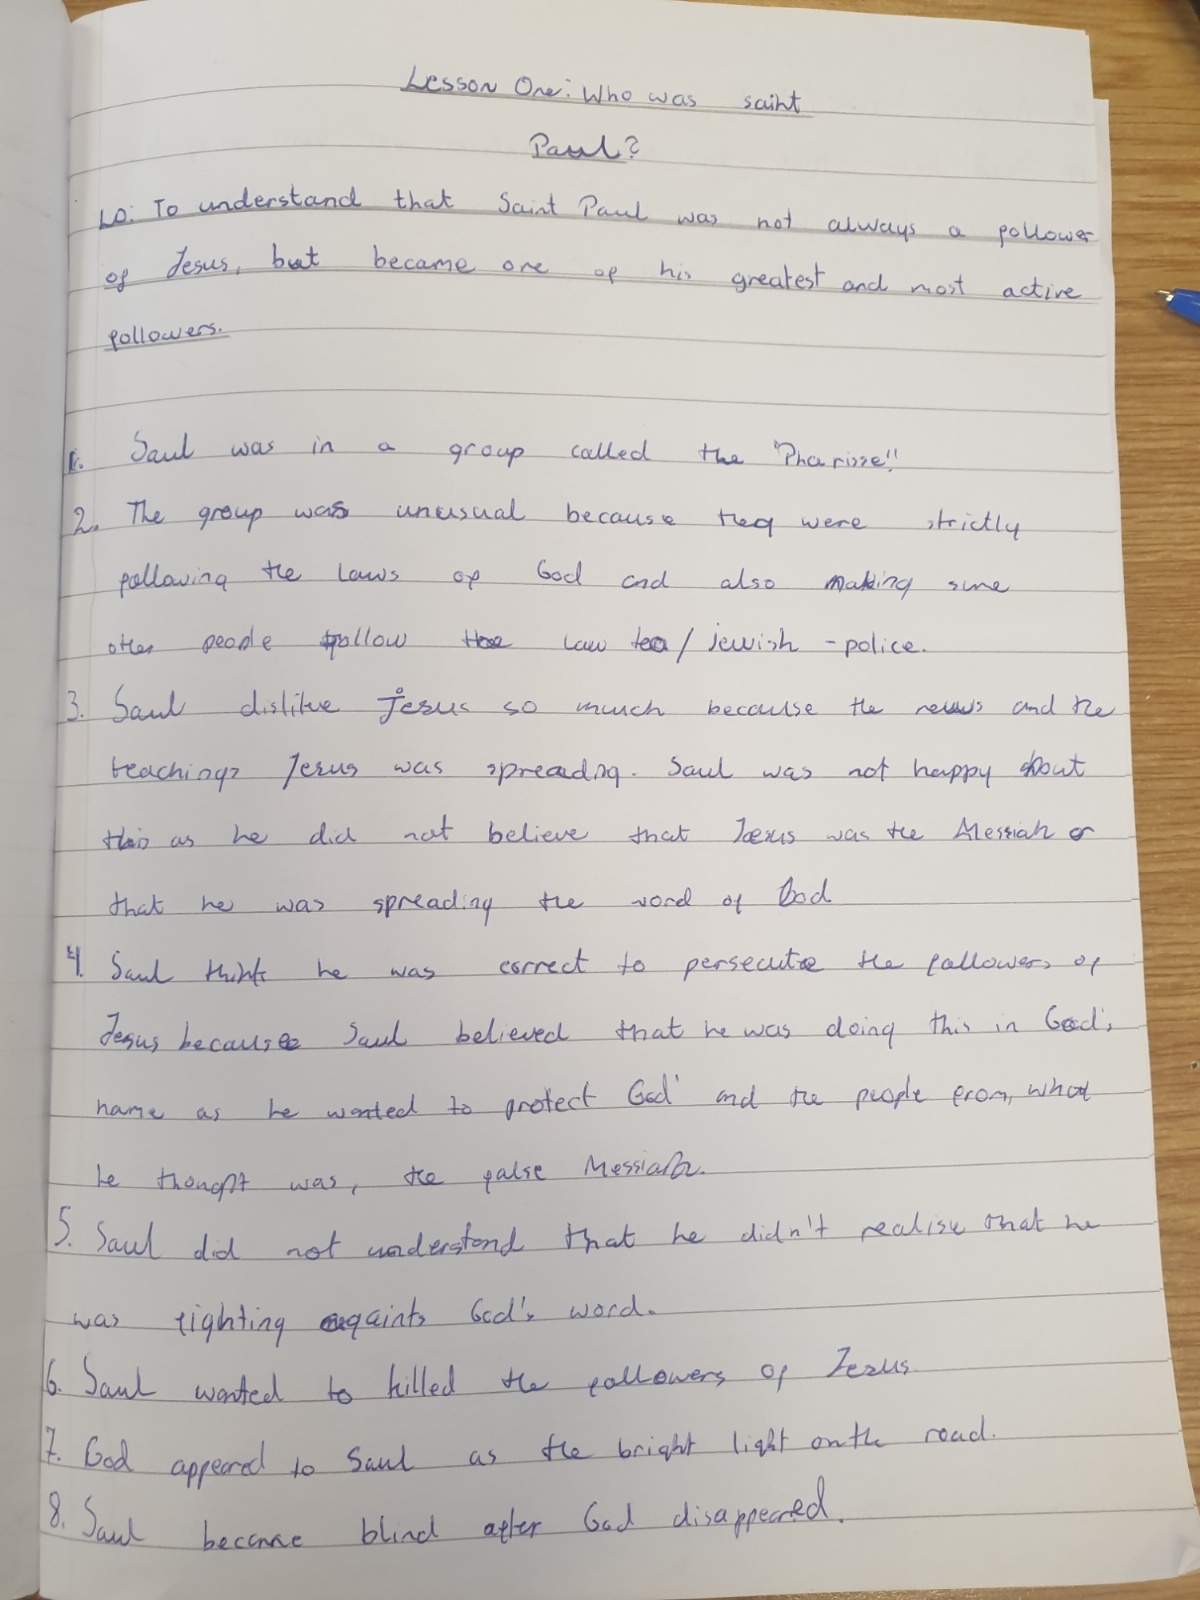 Lesson One: Who was saint
Paul?
LO: To understand that Saint Paul was not always a follower
of Jesus, but became one of his greatest and most active
followers.
1. Saul was in a group called the "Pharisse"
2. The group was unusual because they were strictly
following the laws of God and also making sure
other people follow the law too / jewish - police.
3. Saul dislike Jesus so much because the news and the
teachings Jesus was spreading. Saul was not happy about
this as he did not believe that Jesus was the Messiah or
that he was spreading the word of God
4. Saul think he was correct to persecute the followers of
Jesus because Saul believed that he was doing this in God's
name as he wanted to protect God and the people from, what
he thought was, the false Messiah.
5. Saul did not understand that he didn't realise that he
was fighting againts God's word.
6. Saul wanted to killed the followers of Jesus
7. God appeared to Saul as the bright light on the road.
8. Saul became blind after God disappeared.